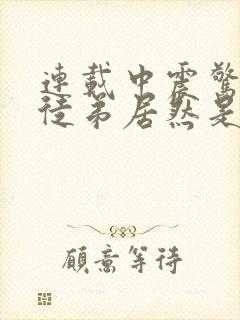 連載中震驚
徒弟居然是
願意等待